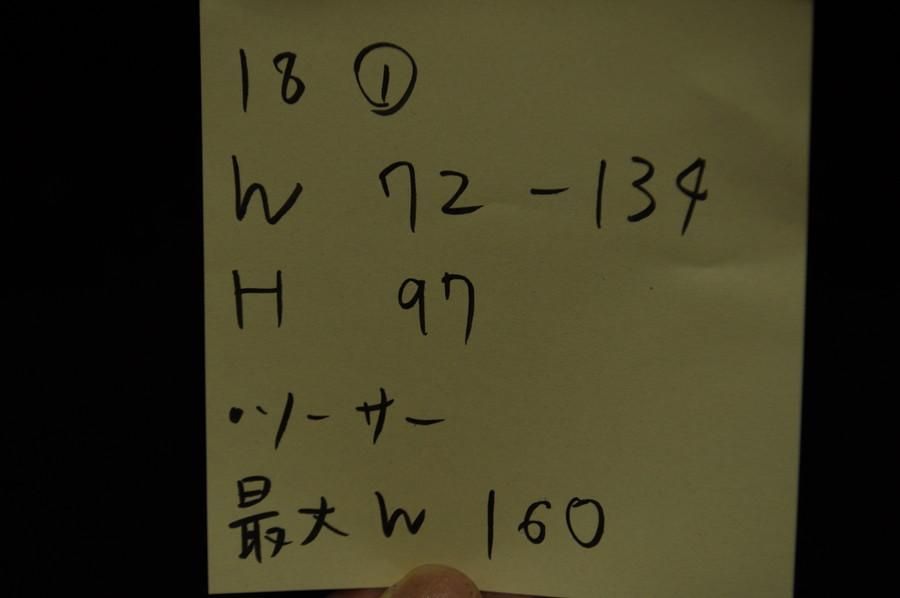 18 ①
W 72-134
H 97
・ソーサー
最大 W 160